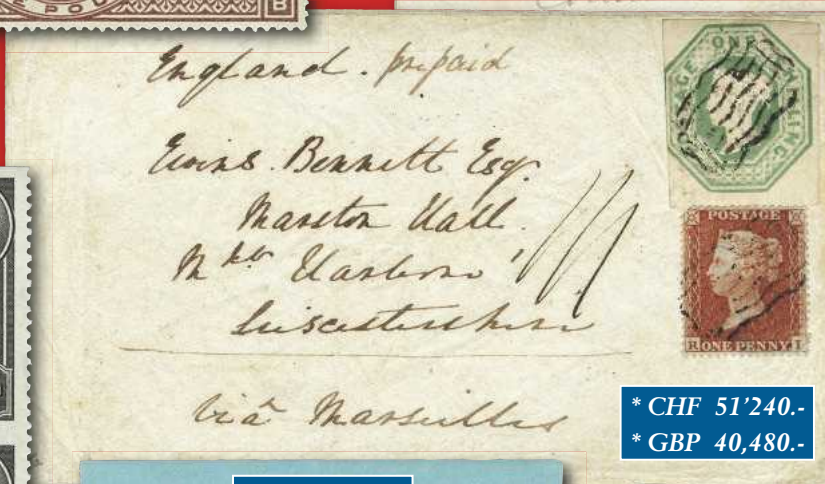 E POU
B
England. prepaid
Ewins. Bennett Esqr.
Marston Hall.
Mkt Harboro'
Leicestershire
via Marseilles
POSTAGE ONE SHILLING
POSTAGE
R ONE PENNY I
* CHF 51'240.-
* GBP 40,480.-